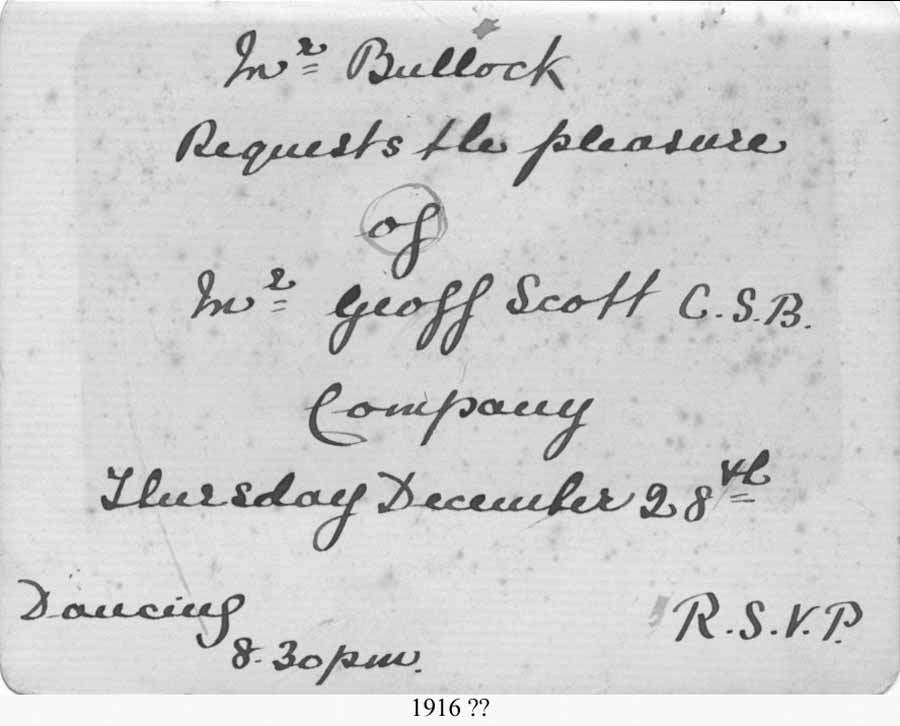 Mr Bullock
Requests the pleasure
of
Mr Geoff Scott C.S.B.
Company
Thursday December 28th
Dancing
8.30pm.
R.S.V.P.
1916 ??